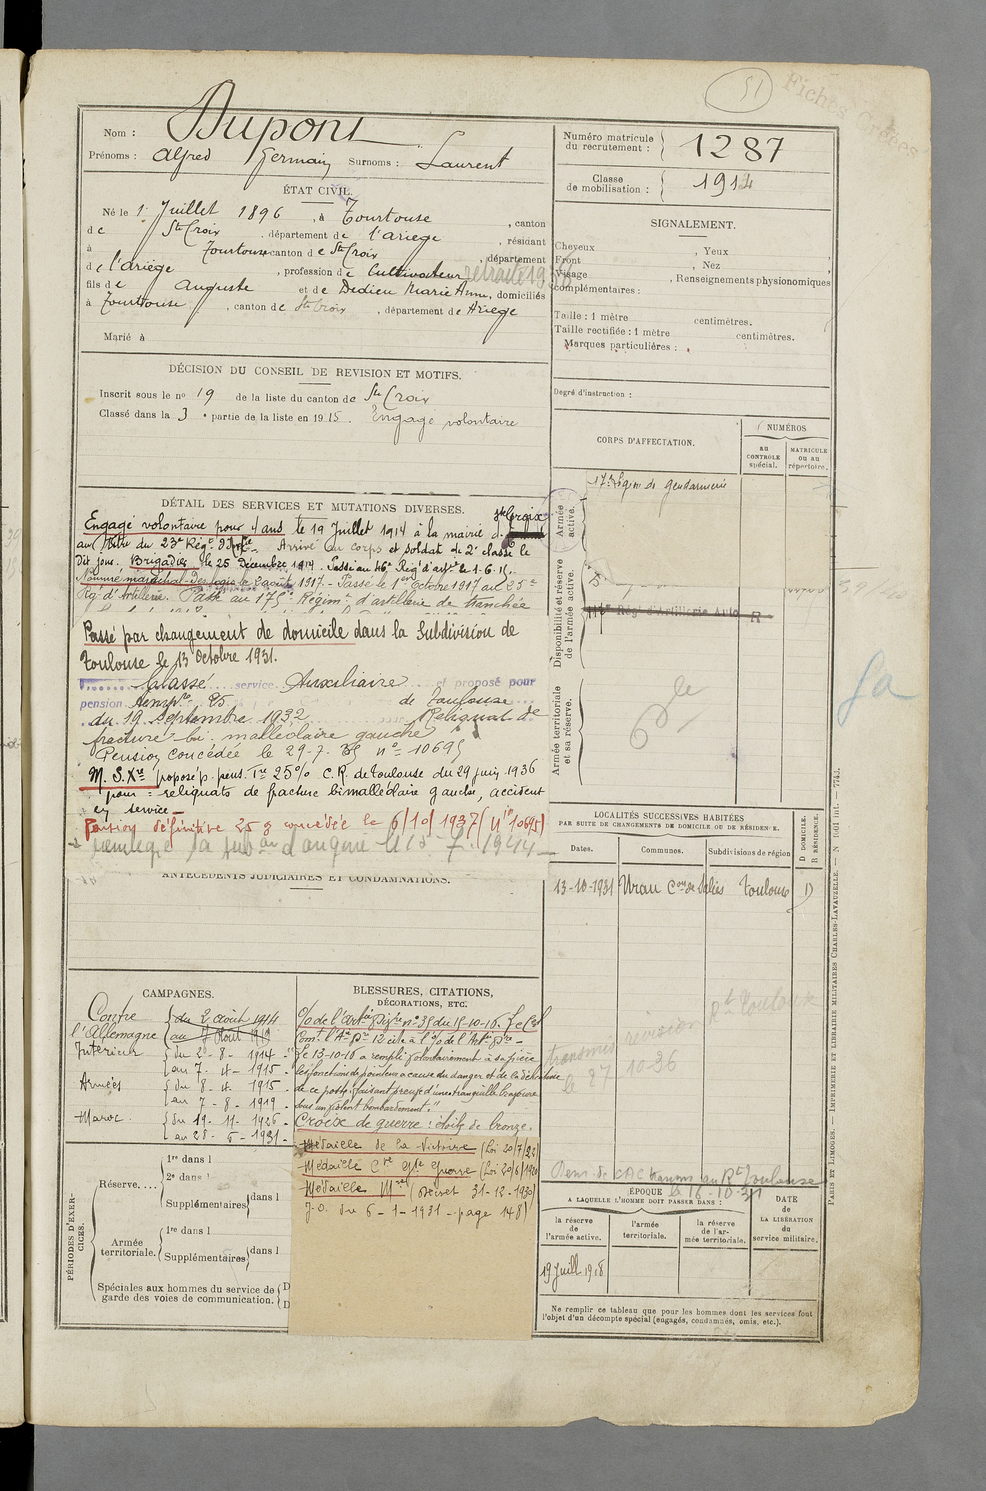 51
Fiches Créées
Nom : Dupont
Prénoms : Alfred Germain Surnoms : Laurent
Numéro matricule du recrutement : 1287
Classe de mobilisation : 1914
ÉTAT CIVIL.
Né le 1er Juillet 1896, à Tourtouse, canton
de Ste Croix, département de l'ariege, résidant
à Tourtouse canton de Ste Croix, département
de l'ariège, profession de Cultivateur retraité
fils de Auguste et de Dedieu Marie Anne, domiciliés
à Tourtouse, canton de Ste Croix, département de Ariège
Marié à
SIGNALEMENT.
Cheveux , Yeux ,
Front , Nez ,
Visage , Renseignements physionomiques
complémentaires :
Taille : 1 mètre centimètres.
Taille rectifiée : 1 mètre centimètres.
Marques particulières :
Degré d'instruction :
DÉCISION DU CONSEIL DE REVISION ET MOTIFS.
Inscrit sous le no 19 de la liste du canton de Ste Croix
Classé dans la 3e partie de la liste en 1915. Engagé volontaire
DÉTAIL DES SERVICES ET MUTATIONS DIVERSES.
Engagé volontaire pour 4 ans le 19 Juillet 1914 à la mairie de Ste Croix
au titre du 23e Régt d'Artie. Arrivé au corps et soldat de 2e classe le
dit jour. Brigadier le 25 décembre 1914. Passé au 46e Régt d'artie le 1.6.15.
Nommé maréchal des logis le 2 août 1917. Passé le 1er Octobre 1917 au 23e
Régt d'Artillerie. Passé au 175e Régiment d'artillerie de tranchée
Passé par changement de domicile dans la Subdivision de
Toulouse le 13 Octobre 1931.
Classé service Auxiliaire et proposé pour
pension tempre 25 de Toulouse
du 19 Septembre 1932 Reliquat de
fracture bi malléolaire gauche
Pension concédée le 29-7-35 no 10695
M. S. Xre proposé p. pens. Tre 25% C.R. de Toulouse du 29 juin 1936
pour : reliquats de fracture bimalléolaire gauche, accident
en service
Pension définitive 25% concédée le 6/10/1937 (no 10695)
ANTÉCÉDENTS JUDICIAIRES ET CONDAMNATIONS.
CORPS D'AFFECTATION.
NUMÉROS
AU CONTRÔLE spécial.
MATRICULE OU AU répertoire.
Armée active.
17e Légion de Gendarmerie
Disponibilité et réserve de l'armée active.
Régt d'Artillerie Auto R
Armée territoriale et sa réserve.
LOCALITÉS SUCCESSIVES HABITÉES
PAR SUITE DE CHANGEMENTS DE DOMICILE OU DE RÉSIDENCE.
D DOMICILE.
R RÉSIDENCE.
Dates. Communes. Subdivisions de région
13-10-1931 Urau Con de Salies Toulouse D
transmis révision Rt Toulouse
le 27 10-36
CAMPAGNES.
Contre l'Allemagne du 2 août 1914
au 7 Août 1919
Intérieur du 2-8-1914
au 7-4-1915
Armées du 8-4-1915
au 7-8-1919
Maroc du 19-11-1926
au 28-6-1931
BLESSURES, CITATIONS, DÉCORATIONS, ETC.
le 13-10-16 a rempli volontairement à sa pièce
les fonctions de pointeur à cause du danger
de ce poste, faisant preuve d'une tranquille bravoure
sous un violent bombardement."
Croix de guerre : étoile de bronze.
Médaille de la Victoire (Loi 20/7/22)
Médaille Cve Gde Guerre (Loi 20/6/1920)
Médaille Mre (Décret 31-12-1930)
J.O. du 6-1-1931 - page 148)
PÉRIODES D'EXERCICES.
Réserve....
1re dans l
2e dans l
Supplémentaires dans l
Armée territoriale.
1re dans l
Supplémentaires dans l
Spéciales aux hommes du service de garde des voies de communication.
D
D
ÉPOQUE
A LAQUELLE L'HOMME DOIT PASSER DANS :
la réserve de l'armée active.
l'armée territoriale.
la réserve de l'armée territoriale.
DATE de LA LIBÉRATION du service militaire.
19 Juill 1918
Ne remplir ce tableau que pour les hommes dont les services font
l'objet d'un décompte spécial (engagés, condamnés, omis, etc.).
PARIS ET LIMOGES. — IMPRIMERIE ET LIBRAIRIE MILITAIRES CHARLES-LAVAUZELLE. — N° 1001 int. — 7745.